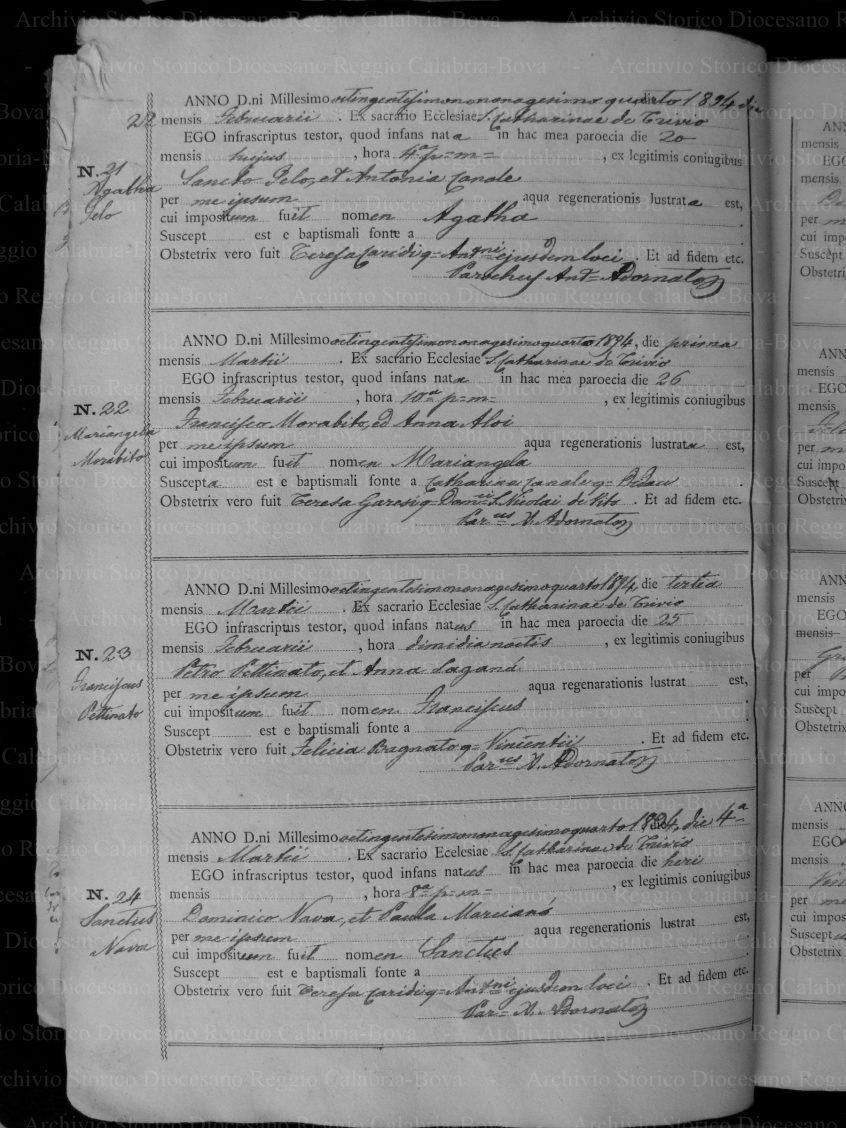 ANNO D.ni Millesimo octingentesimo nonagesimo quarto 1894, die
22 mensis Februarii . Ex sacrario Ecclesiae S. Catharinae de Trivio
EGO infrascriptus testor, quod infans nata in hac mea paroecia die 20
mensis hujus , hora 4ª p=m= , ex legitimis coniugibus
N. 21
Agatha
Pelo
Sancto Pelo, et Antonia Canale
per me ipsum aqua regenerationis lustrata est,
cui impositum fuit nomen Agatha .
Suscept est e baptismali fonte a
Obstetrix vero fuit Teresa Caridi q= Antni ejusdem loci . Et ad fidem etc.
Parochus Ant= Adornato
ANNO D.ni Millesimo octingentesimo nonagesimo quarto 1894, die prima
mensis Martii . Ex sacrario Ecclesiae S. Catharinae de Trivio
EGO infrascriptus testor, quod infans nata in hac mea paroecia die 26
mensis Februarii , hora 10ª p=m= , ex legitimis coniugibus
N. 22
Mariangela
Morabito
Francisco Morabito, ed Anna Aloi
per me ipsum aqua regenerationis lustrata est,
cui impositum fuit nomen Mariangela
Suscepta est e baptismali fonte a Catharina Canale q= .
Obstetrix vero fuit Teresa q= S. Nicolai di Vito . Et ad fidem etc.
Parus A. Adornato
ANNO D.ni Millesimo octingentesimo nonagesimo quarto 1894, die tertia
mensis Martii . Ex sacrario Ecclesiae S. Catharinae de Trivio
EGO infrascriptus testor, quod infans natus in hac mea paroecia die 25
mensis Februarii , hora dimidia noctis , ex legitimis coniugibus
N. 23
Franciscus
Pettinato
Petro Pettinato, et Anna Laganá
per me ipsum aqua regenarationis lustrat est,
cui impositum fuit nomen Franciscus .
Suscept est e baptismali fonte a
Obstetrix vero fuit Felicia Bagnato q= Vincentii . Et ad fidem etc.
Parus A. Adornato
ANNO D.ni Millesimo octingentesimo nonagesimo quarto 1894, die 4ª
mensis Martii . Ex sacrario Ecclesiae S. Catharinae de Trivio
EGO infrascriptus testor, quod infans natus in hac mea paroecia die heri
mensis , hora 8ª p=m= , ex legitimis coniugibus
N. 24
Sanctus
Nava
Dominico Nava, et Paula Marcianó
per me ipsum aqua regenerationis lustrat est,
cui impositum fuit nomen Sanctus .
Suscept est e baptismali fonte a
Obstetrix vero fuit Teresa Caridi q= Antni ejusdem loci . Et ad fidem etc.
Par= A. Adornato